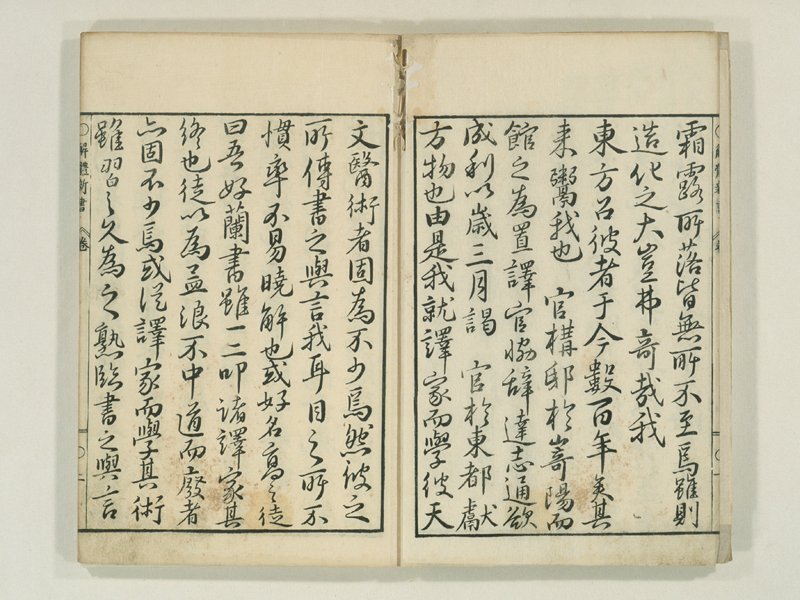 霜露所落皆無所不至焉雖則
造化之大豈弗奇哉我
東方召彼者于今數百年矣其
来鬻我也　官構邸於崎陽而
館之為置譯官協辭達志通欲
成利以歳三月謁　官於東都獻
方物也由是我就譯家而學彼天
文醫術者固為不少焉然彼之
所傳書之與言我耳目之所不
慣率不易曉解也或好名高之徒
曰吾好蘭書雖一二叩諸譯家其
終也徒以為孟浪不中道而廢者
亦固不少焉或從譯家而學其術
雖習之久為之熟臨書之與言
〇解體新書　卷　〇一